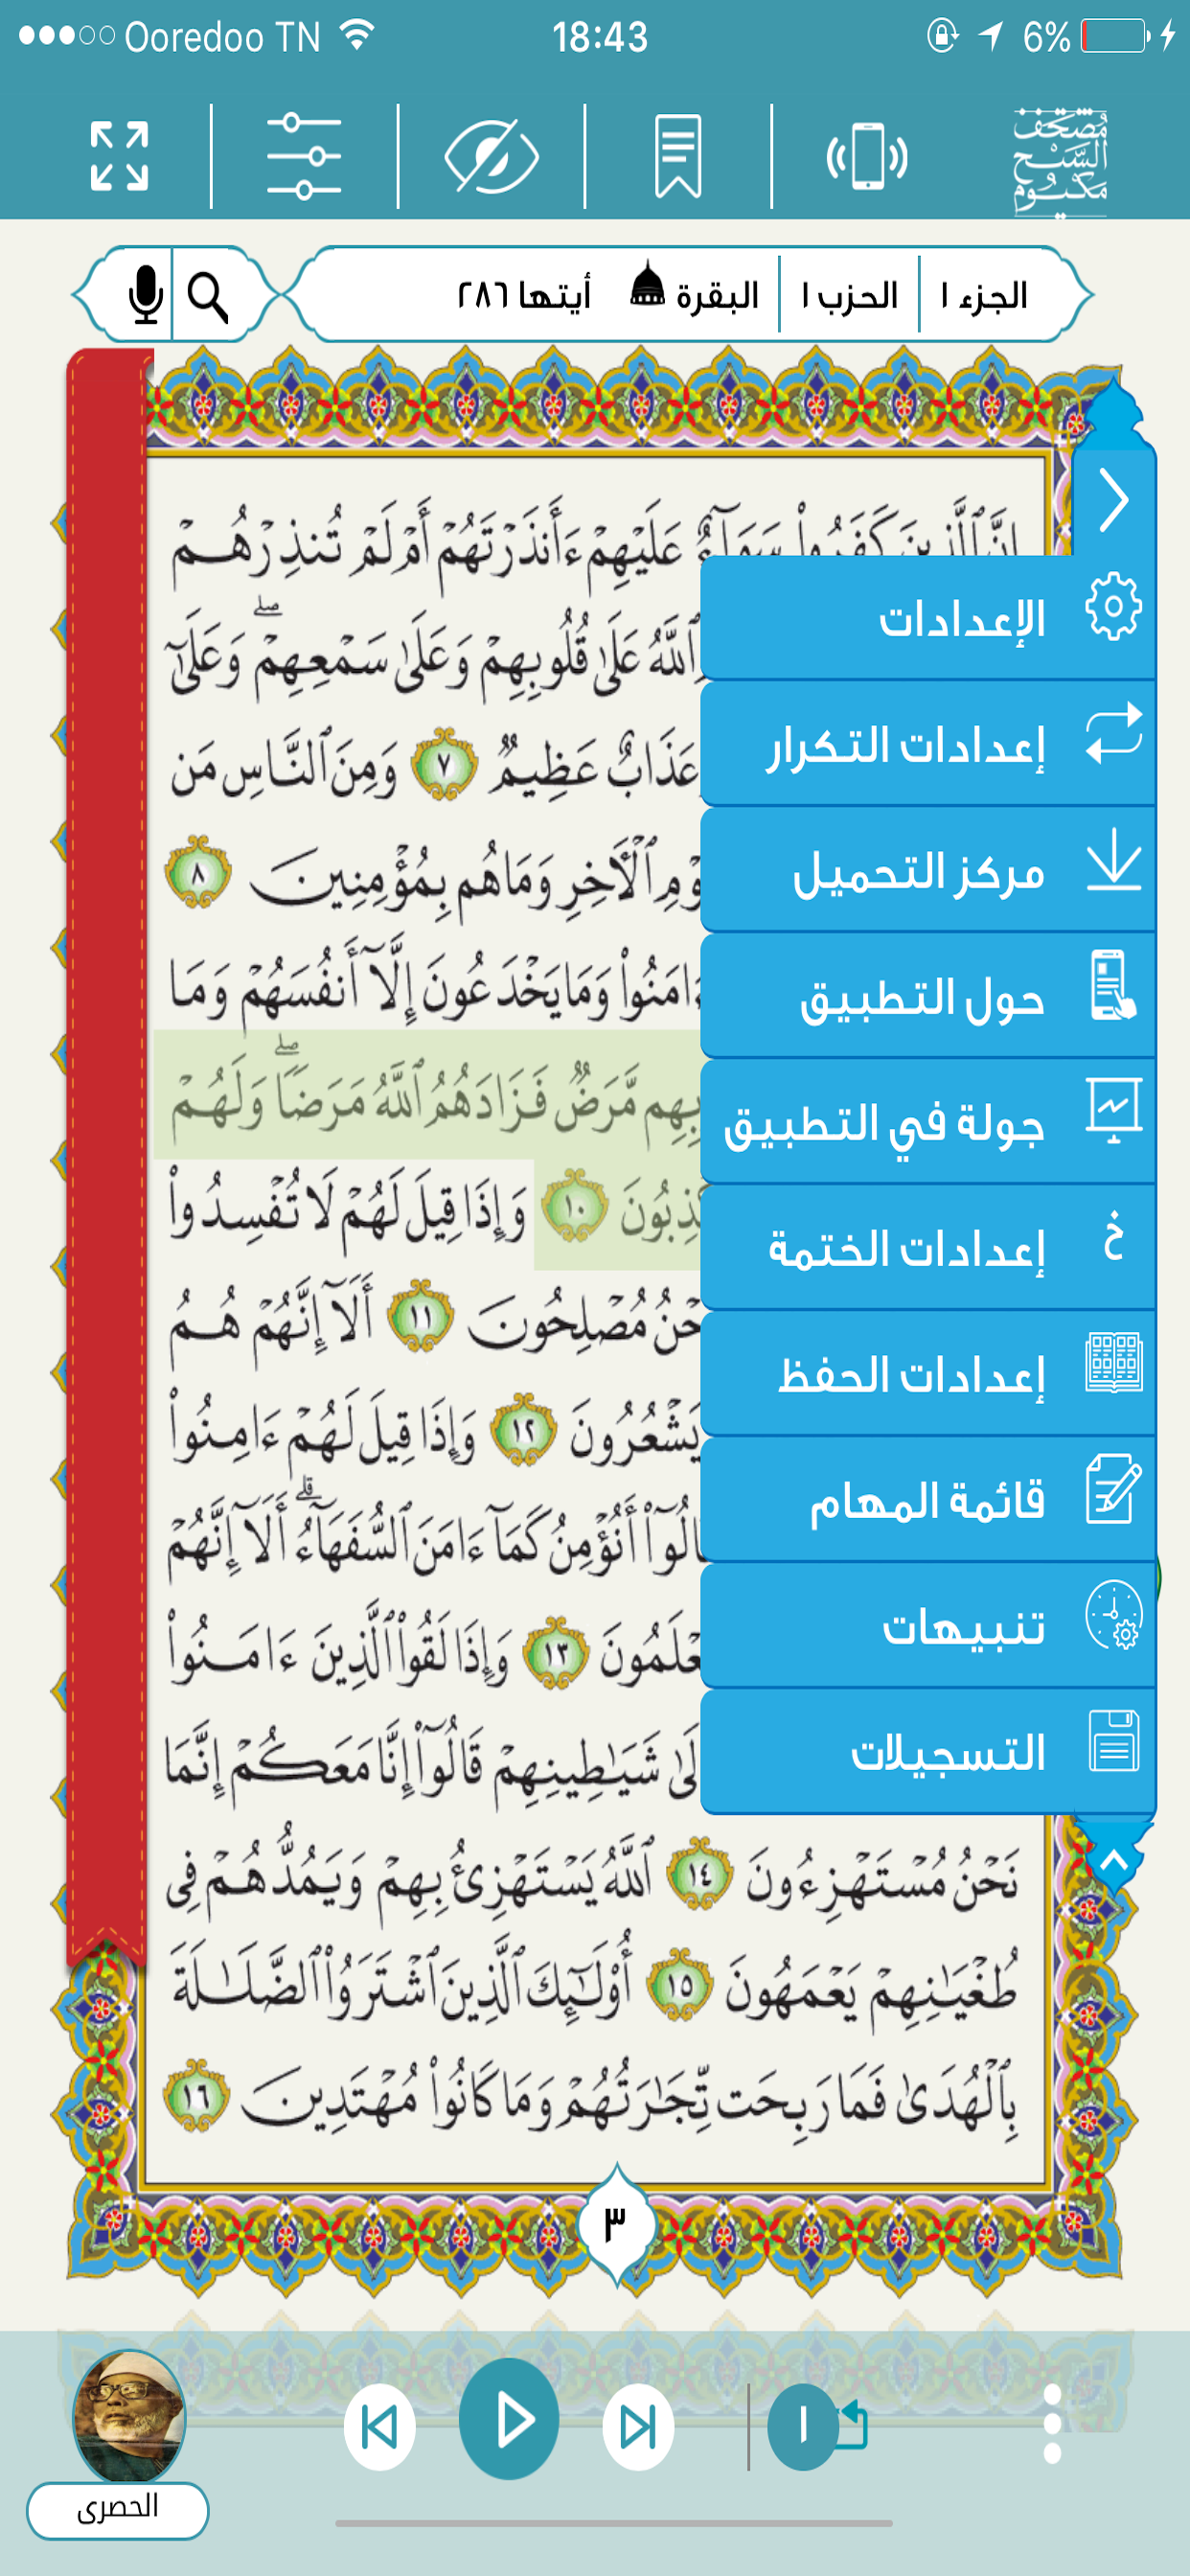 Ooredoo TN 18:43 6%
الجزء ١ الحزب ١ البقرة أيتها ٢٨٦
إِنَّ ٱلَّذِينَ كَفَرُوا۟ سَوَآءٌ عَلَيْهِمْ ءَأَنذَرْتَهُمْ أَمْ لَمْ تُنذِرْهُمْ
ٱللَّهُ عَلَىٰ قُلُوبِهِمْ وَعَلَىٰ سَمْعِهِمْ ۖ وَعَلَىٰٓ
عَذَابٌ عَظِيمٌ ٧ وَمِنَ ٱلنَّاسِ مَن
ٱلْءَاخِرِ وَمَا هُم بِمُؤْمِنِينَ ٨
ءَامَنُوا۟ وَمَا يَخْدَعُونَ إِلَّآ أَنفُسَهُمْ وَمَا
بِهِم مَّرَضٌ فَزَادَهُمُ ٱللَّهُ مَرَضًا ۖ وَلَهُمْ
ذِبُونَ ١٠ وَإِذَا قِيلَ لَهُمْ لَا تُفْسِدُوا۟
حْنُ مُصْلِحُونَ ١١ أَلَآ إِنَّهُمْ هُمُ
يَشْعُرُونَ ١٢ وَإِذَا قِيلَ لَهُمْ ءَامِنُوا۟
الُوٓا۟ أَنُؤْمِنُ كَمَآ ءَامَنَ ٱلسُّفَهَآءُ ۗ أَلَآ إِنَّهُمْ
عْلَمُونَ ١٣ وَإِذَا لَقُوا۟ ٱلَّذِينَ ءَامَنُوا۟
لَىٰ شَيَٰطِينِهِمْ قَالُوٓا۟ إِنَّا مَعَكُمْ إِنَّمَا
نَحْنُ مُسْتَهْزِءُونَ ١٤ ٱللَّهُ يَسْتَهْزِئُ بِهِمْ وَيَمُدُّهُمْ فِى
طُغْيَٰنِهِمْ يَعْمَهُونَ ١٥ أُو۟لَٰٓئِكَ ٱلَّذِينَ ٱشْتَرَوُا۟ ٱلضَّلَٰلَةَ
بِٱلْهُدَىٰ فَمَا رَبِحَت تِّجَٰرَتُهُمْ وَمَا كَانُوا۟ مُهْتَدِينَ ١٦
الإعدادات
إعدادات التكرار
مركز التحميل
حول التطبيق
جولة في التطبيق
خ إعدادات الختمة
إعدادات الحفظ
قائمة المهام
تنبيهات
التسجيلات
٣
١
الحصرى